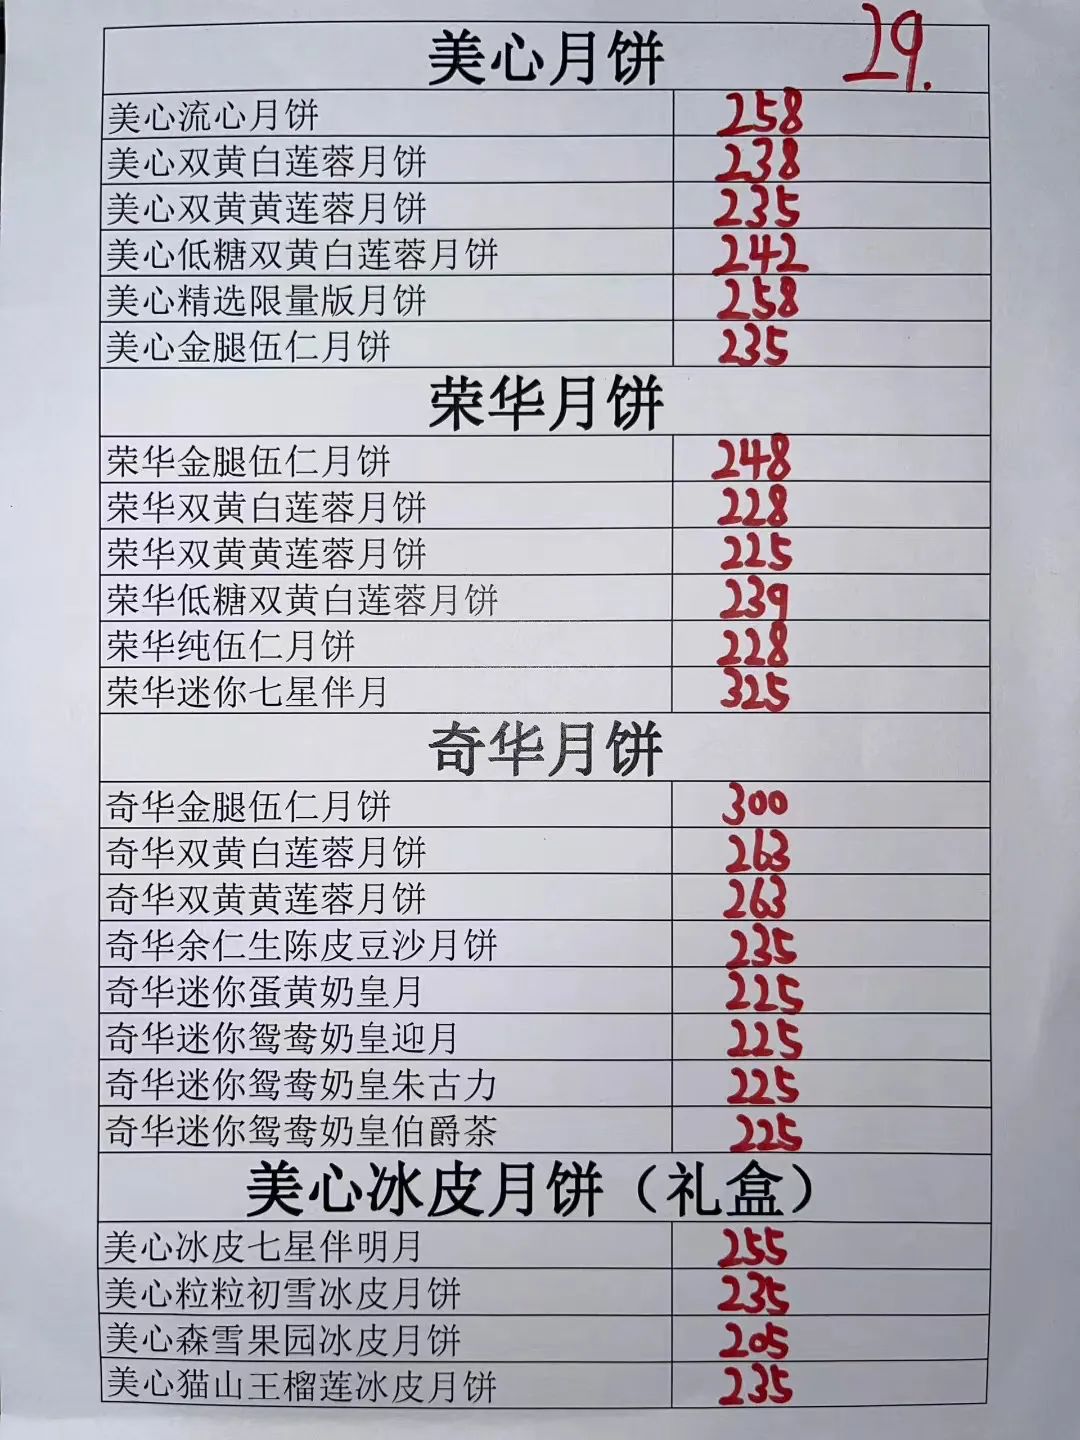 美心月饼 29.
美心流心月饼 258
美心双黄白莲蓉月饼 238
美心双黄黄莲蓉月饼 235
美心低糖双黄白莲蓉月饼 242
美心精选限量版月饼 258
美心金腿伍仁月饼 235
荣华月饼
荣华金腿伍仁月饼 248
荣华双黄白莲蓉月饼 228
荣华双黄黄莲蓉月饼 225
荣华低糖双黄白莲蓉月饼 239
荣华纯伍仁月饼 228
荣华迷你七星伴月 325
奇华月饼
奇华金腿伍仁月饼 300
奇华双黄白莲蓉月饼 263
奇华双黄黄莲蓉月饼 263
奇华余仁生陈皮豆沙月饼 235
奇华迷你蛋黄奶皇月 225
奇华迷你鸳鸯奶皇迎月 225
奇华迷你鸳鸯奶皇朱古力 225
奇华迷你鸳鸯奶皇伯爵茶 225
美心冰皮月饼（礼盒）
美心冰皮七星伴明月 255
美心粒粒初雪冰皮月饼 235
美心森雪果园冰皮月饼 205
美心猫山王榴莲冰皮月饼 235